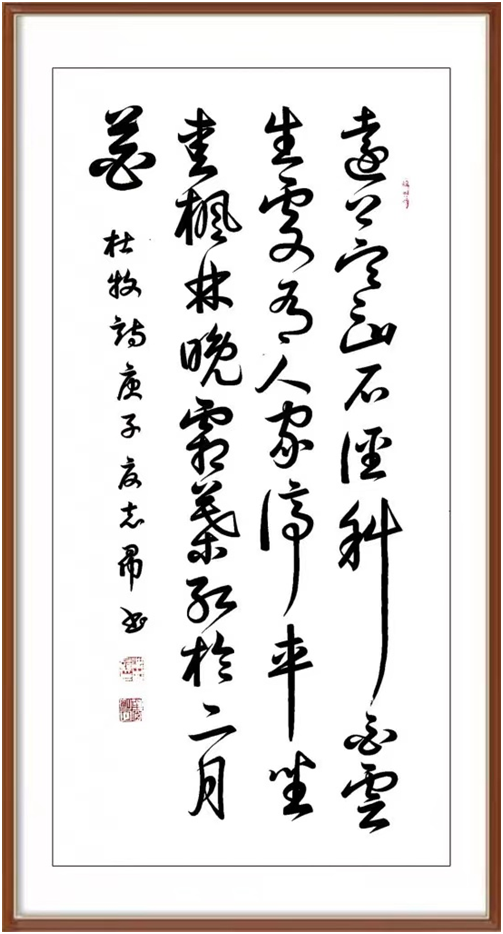 遠上寒山石徑斜白雲
生處有人家停車坐
愛楓林晚霜葉紅於二月
花
杜牧詩庚子夏志書